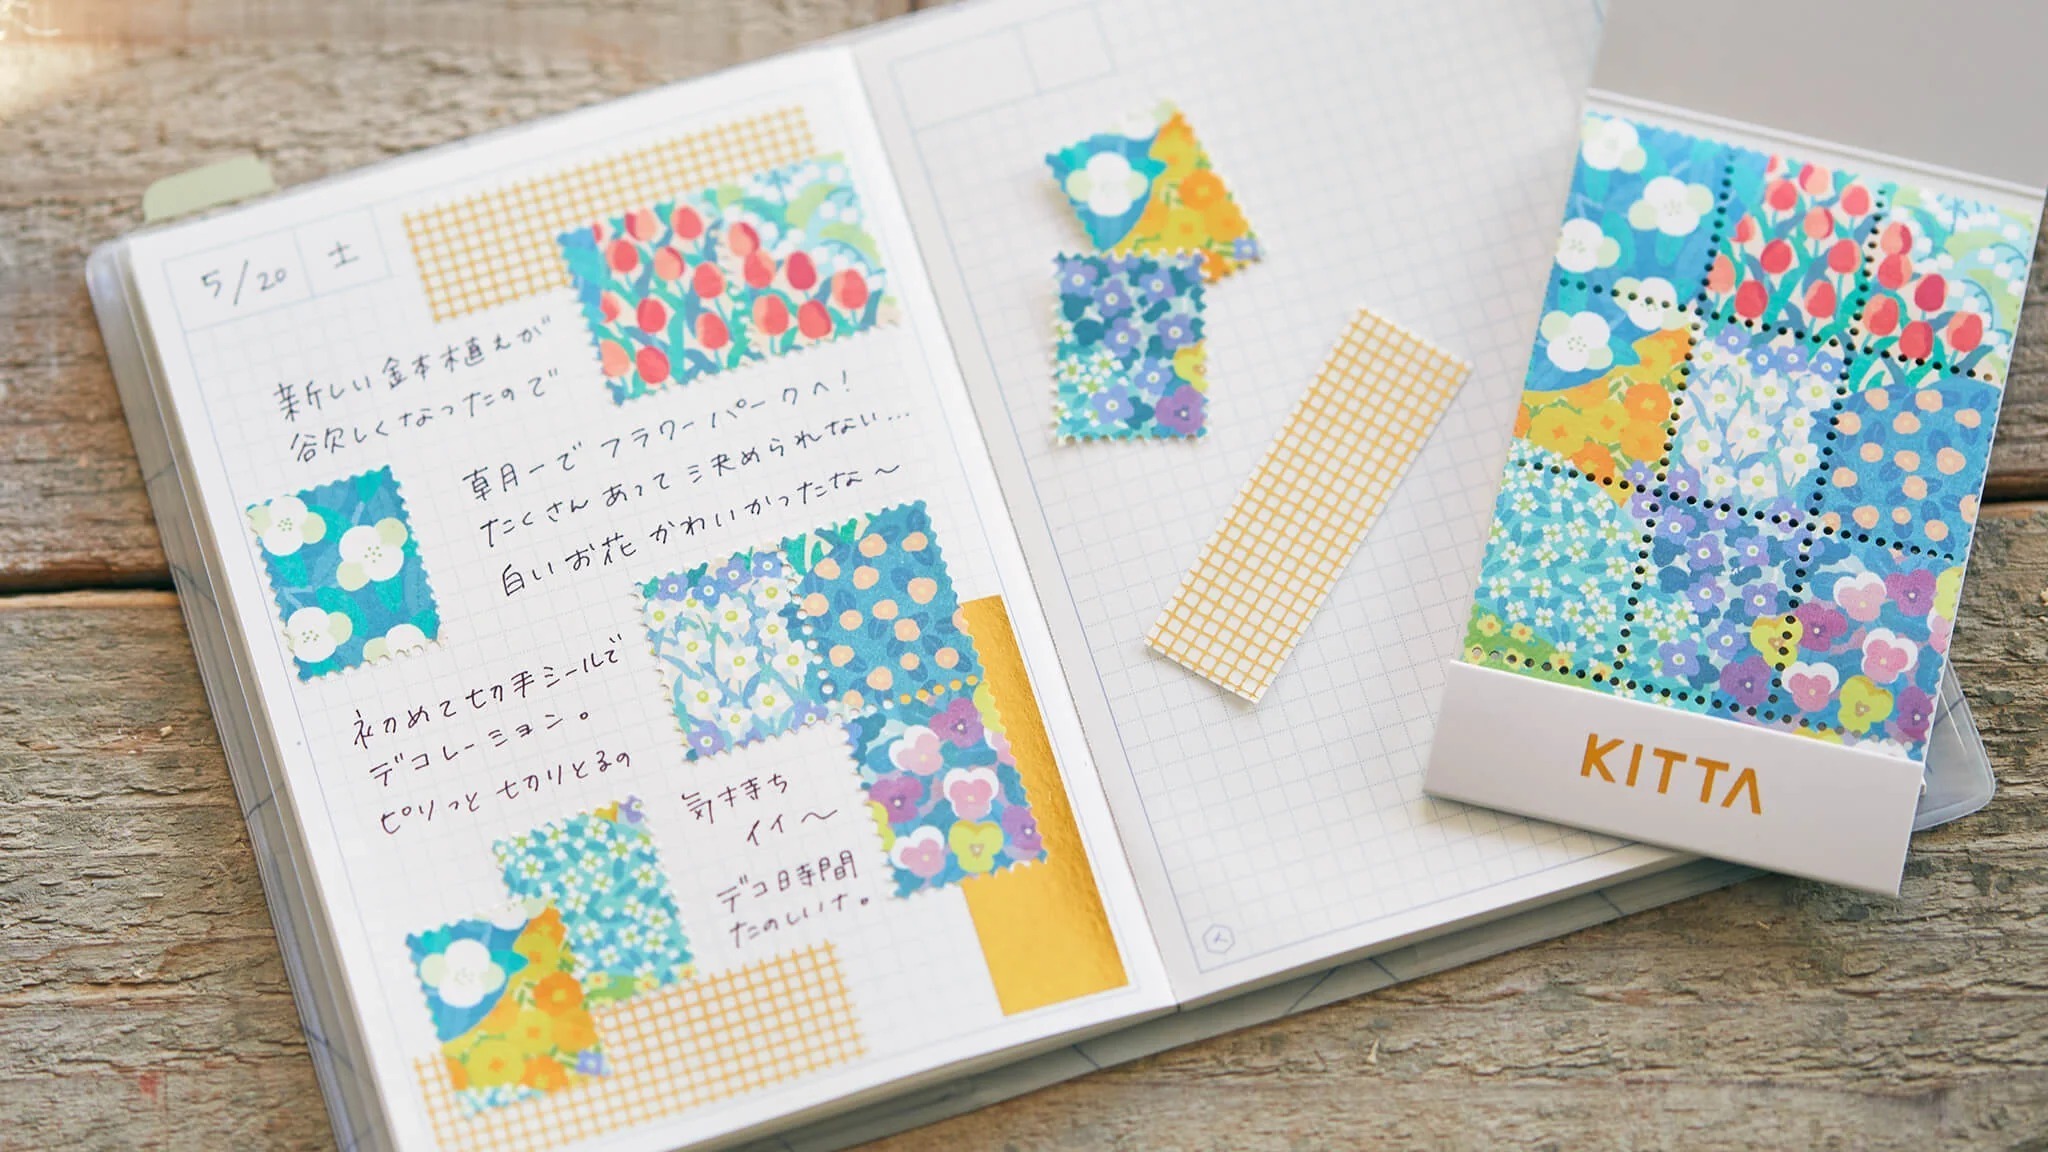 5/20 土
新しい鉢植えが
欲しくなったので
朝一でフラワーパークへ!
たくさんあって決められない...
白いお花かわいかったな〜
初めて切手シールで
デコレーション。
ピリっと切りとるの
気持ち
イイ〜
デコ時間
たのしいナ。
KITTA